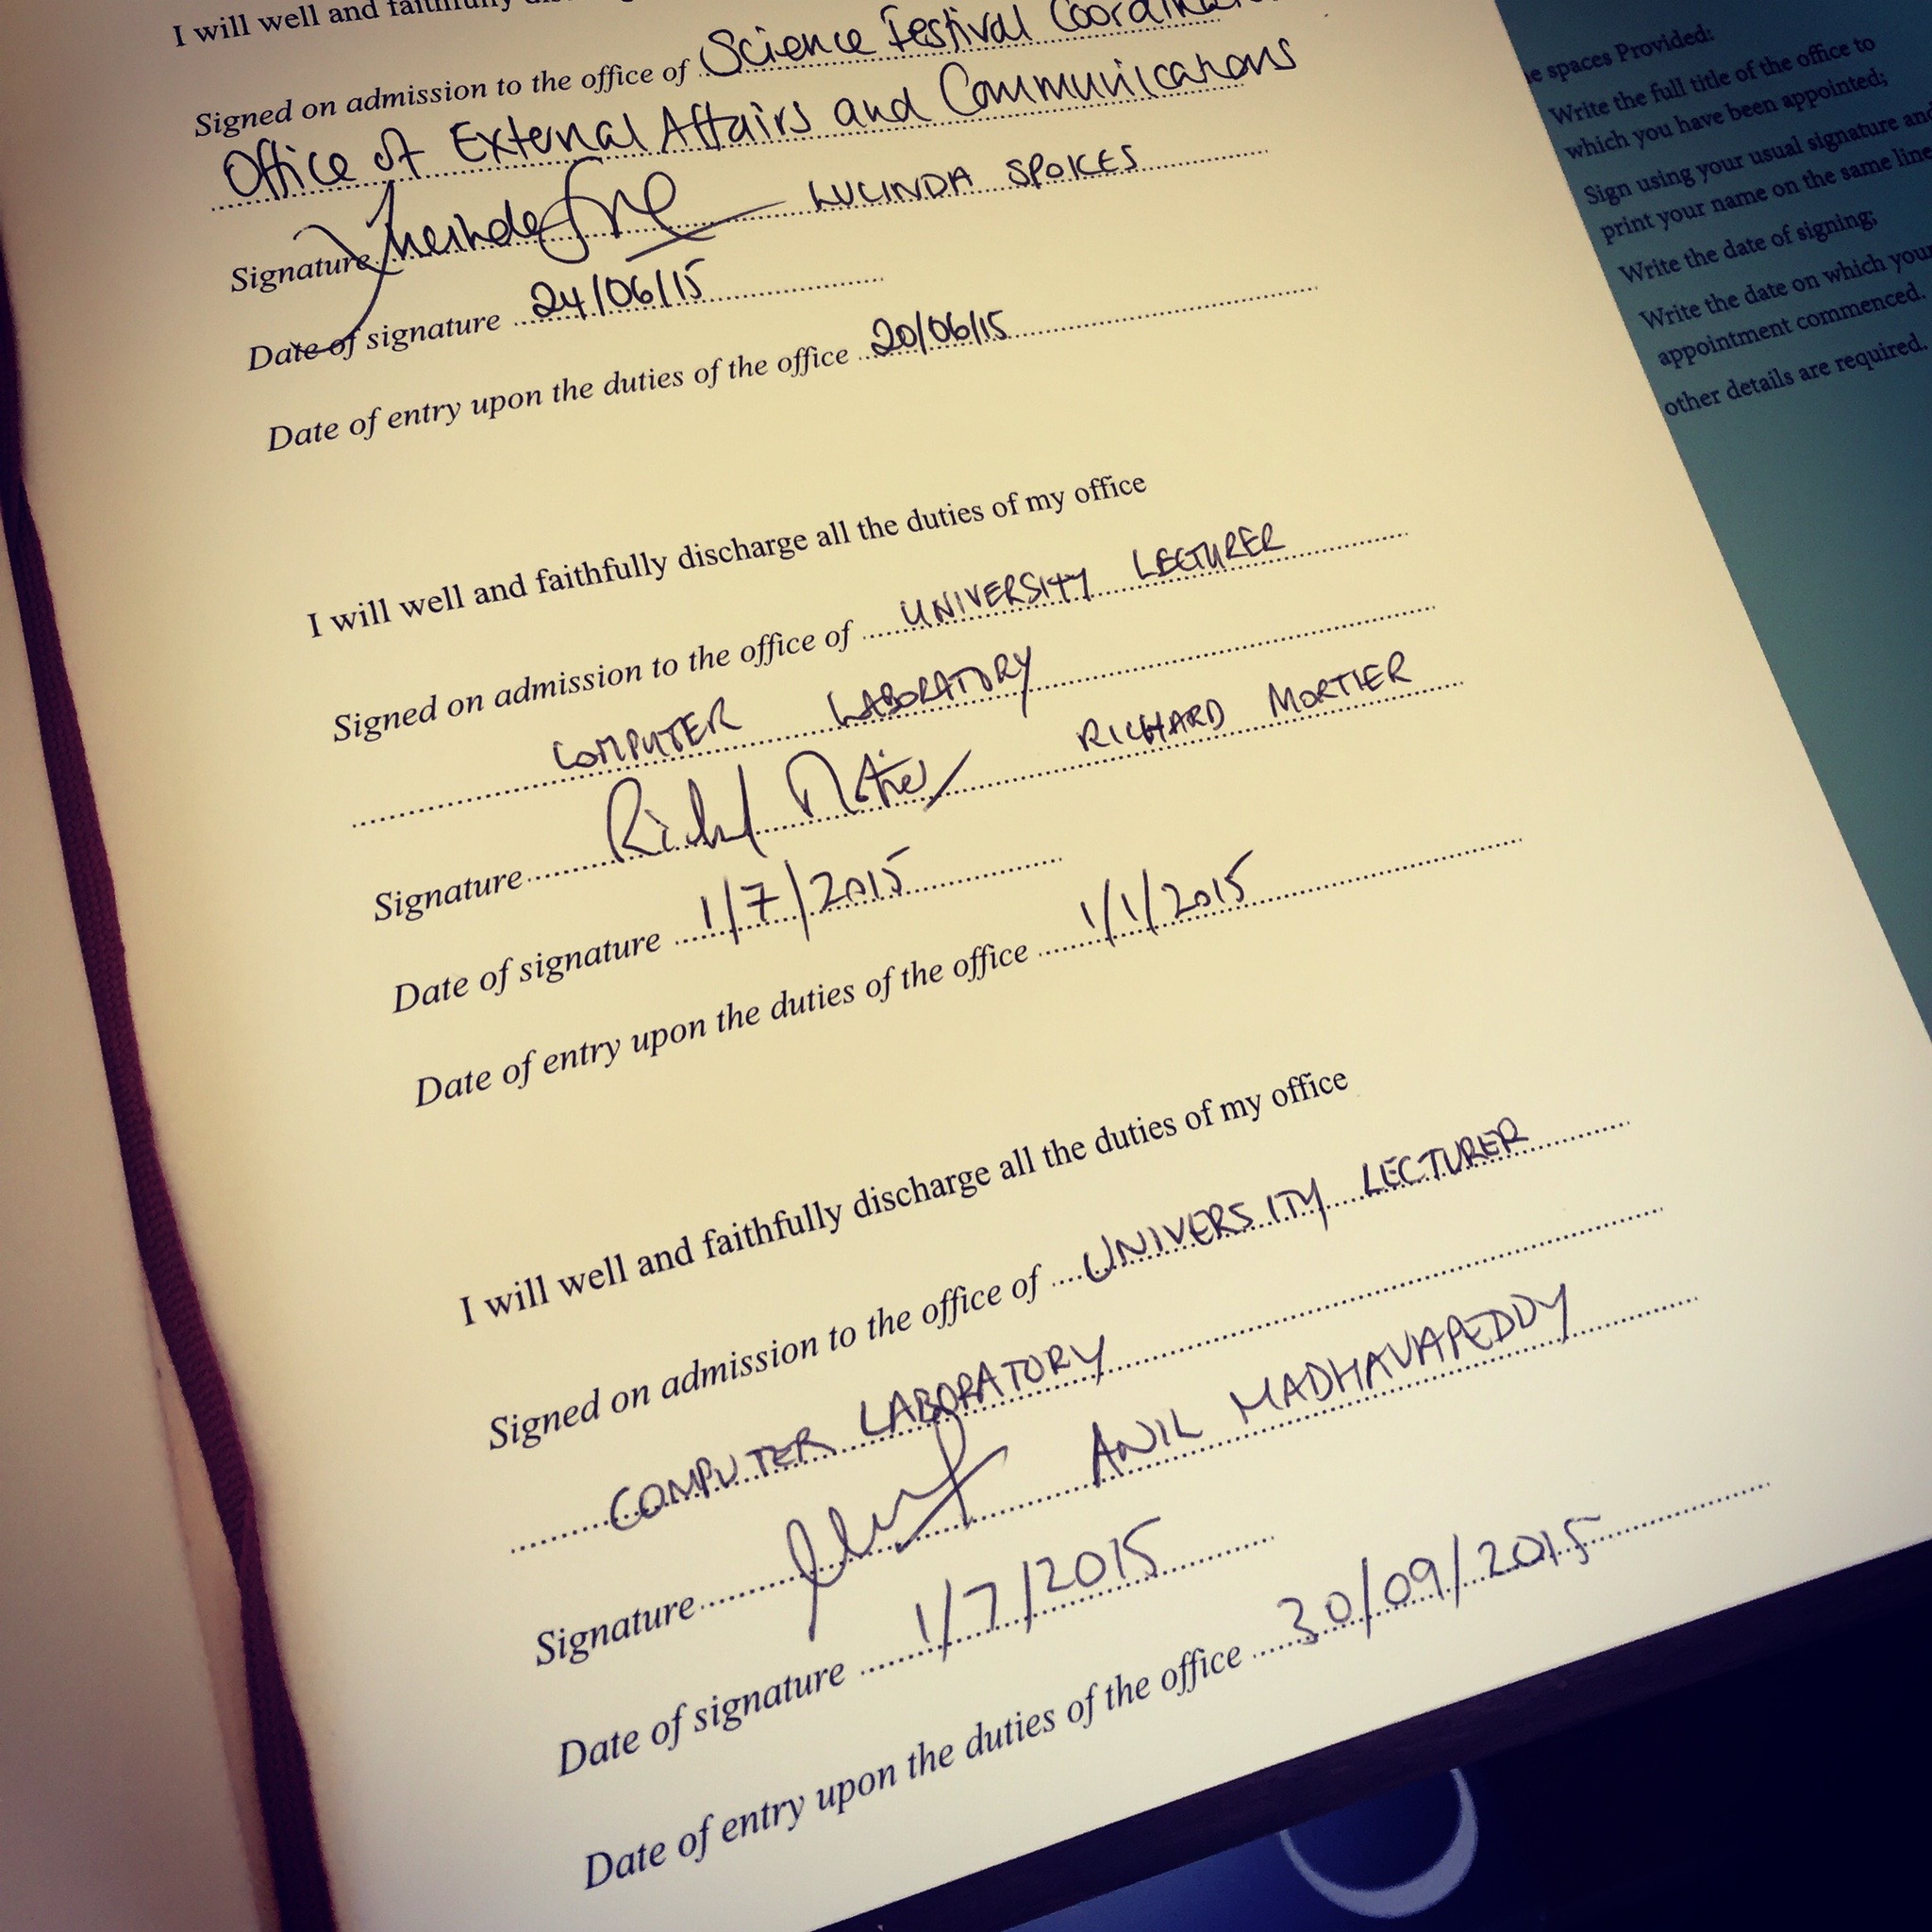 I will well and faithfully
Signed on admission to the office of Science Festival
Office of External Affairs and Communications
Signature LUCINDA SPOKES
Date of signature 24/06/15
Date of entry upon the duties of the office 20/06/15
I will well and faithfully discharge all the duties of my office
Signed on admission to the office of UNIVERSITY LECTURER
COMPUTER LABORATORY
Signature Richard Mortier RICHARD MORTIER
Date of signature 1/7/2015
Date of entry upon the duties of the office 1/1/2015
I will well and faithfully discharge all the duties of my office
Signed on admission to the office of UNIVERSITY LECTURER
COMPUTER LABORATORY
Signature ANIL MADHAVAPEDDY
Date of signature 1/7/2015
Date of entry upon the duties of the office 30/09/2015
spaces Provided:
Write the full title of the office to
which you have been appointed;
Sign using your usual signature and
print your name on the same line
Write the date of signing;
Write the date on which your
appointment commenced.
other details are required.